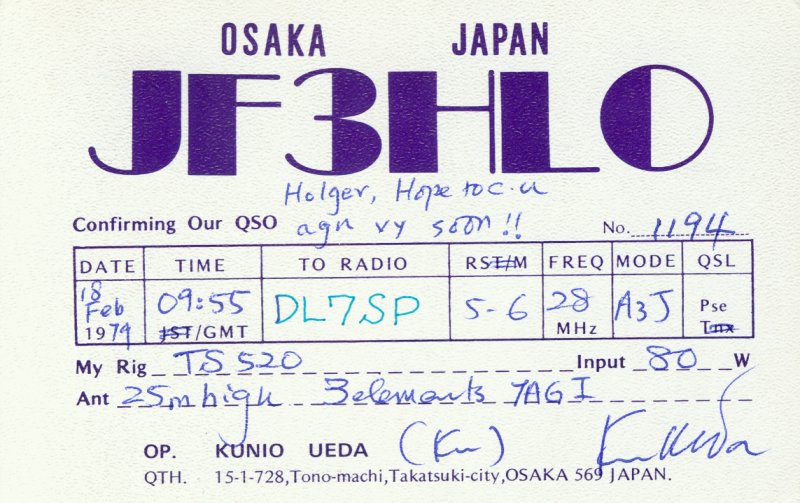 OSAKA JAPAN
JF3HLO
Holger, Hope to c. u
Confirming Our QSO agn vy soon!! No. 1194
DATE TIME TO RADIO RST/M FREQ MODE QSL
18 Feb 1979 09:55 JST/GMT DL7SP 5-6 28 MHz A3J Pse Tnx
My Rig TS 520 Input 80 W
Ant 25m high 3elements YAGI
OP. KUNIO UEDA (Kun)
QTH. 15-1-728,Tono-machi,Takatsuki-city,OSAKA 569 JAPAN.